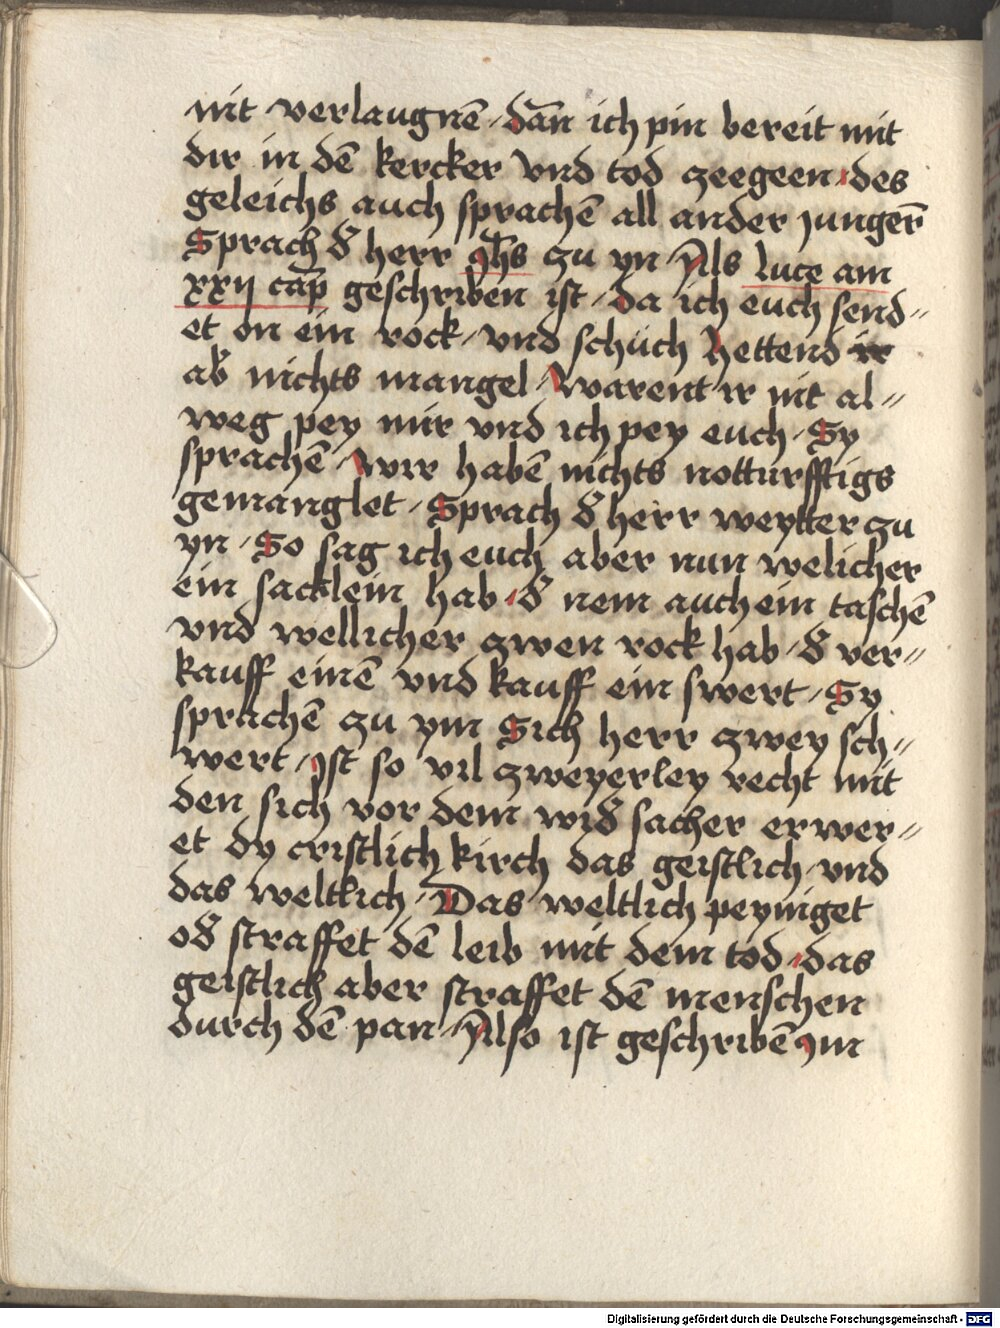 nit verlaugnē / dan̄ ich pin bereit mit
dir in dē kercker vnd tod zeegeen / des
geleichs auch sprachē all ander junger̄
Sprach d̄ herr jh̄s zu yn / Als luce am
xxij cap̄ geschriben ist / da ich euch send〃
et on ein rock / vnd schüch hettend ir
ab̄ nichts mangel / Warent ir nit al〃
weg pey mir vnd ich pey euch / Sy
sprachē / Wir habē nichts notturfftigs
gemanglet / Sprach d̄ herr weytter zu
yn / So sag ich euch aber nun welicher
ein sacklein hab / d̄ nem auch ein taschē
vnd wellicher zwen rock hab / d̄ ver〃
kauff einē vnd kauff ein swert / Sy
sprachē zu ym Sich herr zwey sch〃
wert / Ist so vil zweyerley recht mit
den sich vor dem wid̄ sacher erwer〃
et dy cristlich kirch das geistlich / vnd
das weltlich / Das weltlich peyniget
od̄ straffet dē leib mit dem tod / das
geistlich aber straffet dē menschen
durch dē pan / Also ist geschribē Im
Digitalisierung gefördert durch die Deutsche Forschungsgemeinschaft - DFG